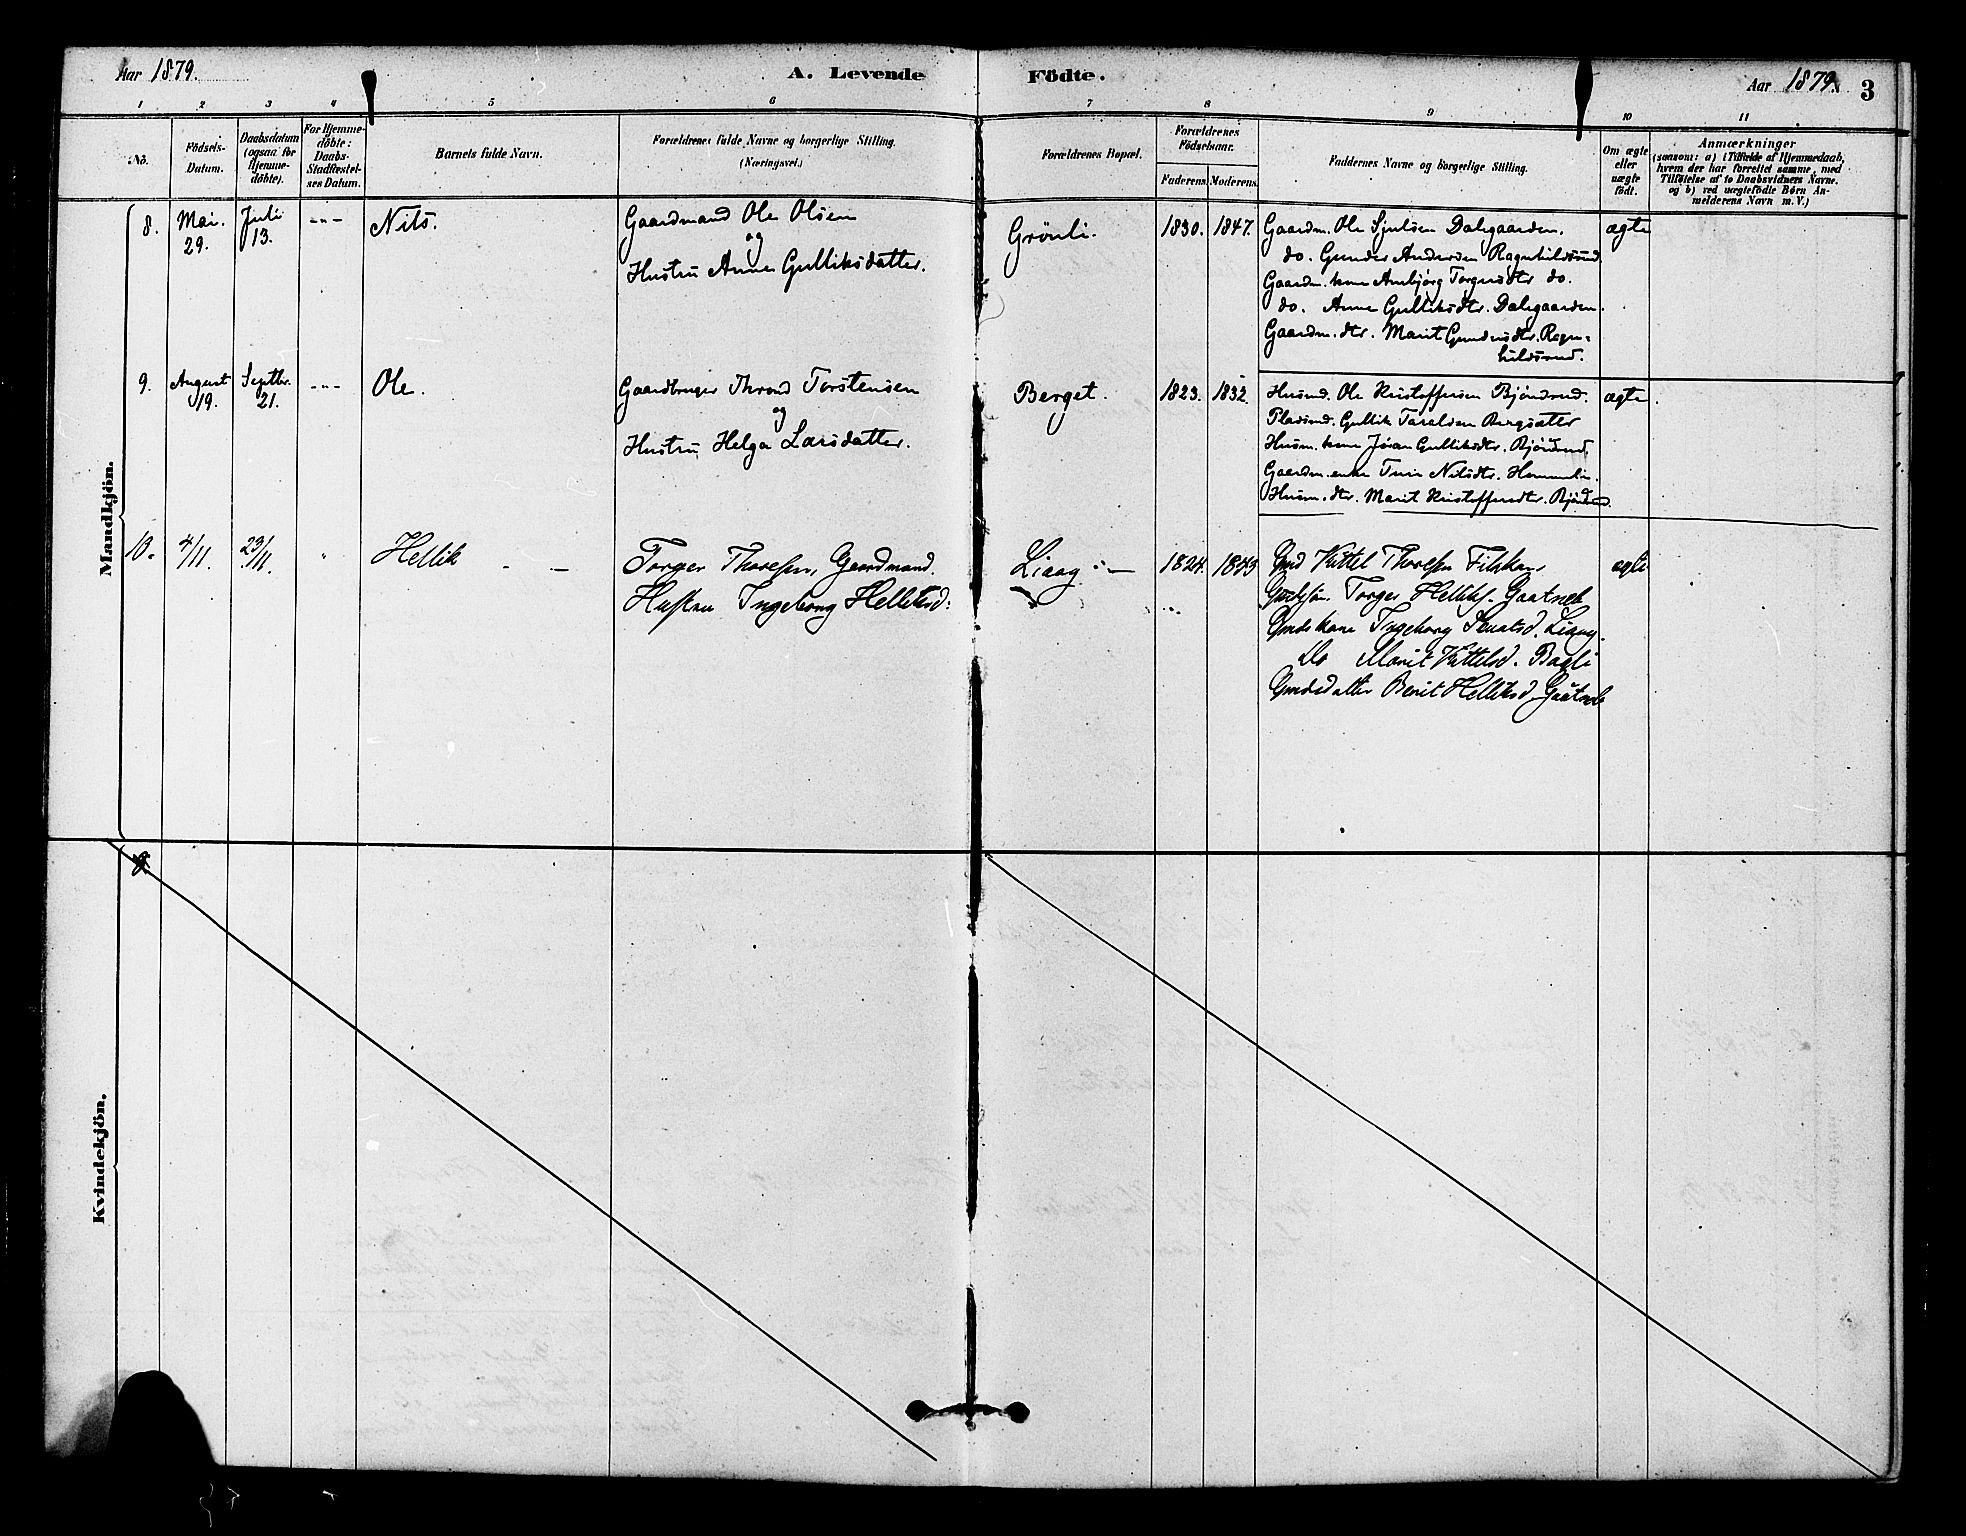 Aar 1879.
A. Levende Födte.
Aar 1879. 3
1 2 3 4 5 6 7 8 9 10 11
No.
Födsels-Datum.
Daabsdatum (ogsaa for Hjemme-döbte).
For Hjemme-döbte: Daabs-Stadfæstel-ses Datum.
Barnets fulde Navn.
Forældrenes fulde Navne og borgerlige Stilling. (Næringsvei.)
Forældrenes Bopæl.
Forældrenes Födselsaar.
Faderens. Moderens.
Faddernes Navne og borgerlige Stilling.
Om ægte eller uægte födt.
Anmærkninger
(saasom: a) i Tilfælde af Hjemmedaab,
hvem der har forrettet samme, med
Tilföielse af to Daabsvidners Navne,
og b) ved uægtefödte Börn An-
melderens Navn m. V.)
Mandkjön.
8. Mai. 29. Juli 13. -"- Nils.
Gaardmand Ole Olsen
og
Hustru Anne Gulliksdatter.
Grönli. 1830. 1847.
Gaardm. Ole Sjulsen Dalegaarden.
do. Gunder Andersen Ragnhildsrud.
Gaardm. kone Anbjørg Torgersdtr do.
do. Anne Gulliksdtr. Dalegaarden.
Gaardm. dtr. Marit Gundersdtr. Ragn-
hildsrud.
ægte
9. August 19. Septbr. 21. -"- Ole.
Gaardbruger Thrond Torstensen
og
Hustru Helga Larsdatter.
Berget. 1823. 1832.
Husmd. Ole Kristoffersen Bjöndrud.
Pladsmd. Gullik Taraldsen Bergsæter
Husm. kone Jøran Gulliksdtr. Bjöndrud.
Gaardm. enke Turi Nilsdtr.
Husm. dtr. Marit Kristoffersdtr. Bjöndrud.
ægte.
10. 4/11. 23/11. " Hellik
Torger Thoresen, Gaardmand.
Hustru Ingeborg Helliksd:
Liaag 1824. 1843
Gmd Kittel Thoresen
Torger Helliks. Gaatneb
Gmdskone Ingeborg Knutsd. Liaag.
Do Marit Kittelsd. Bagli
Gmdsdatter Berit Helliksd. Gaatneb
ægte
Kvindekjön.